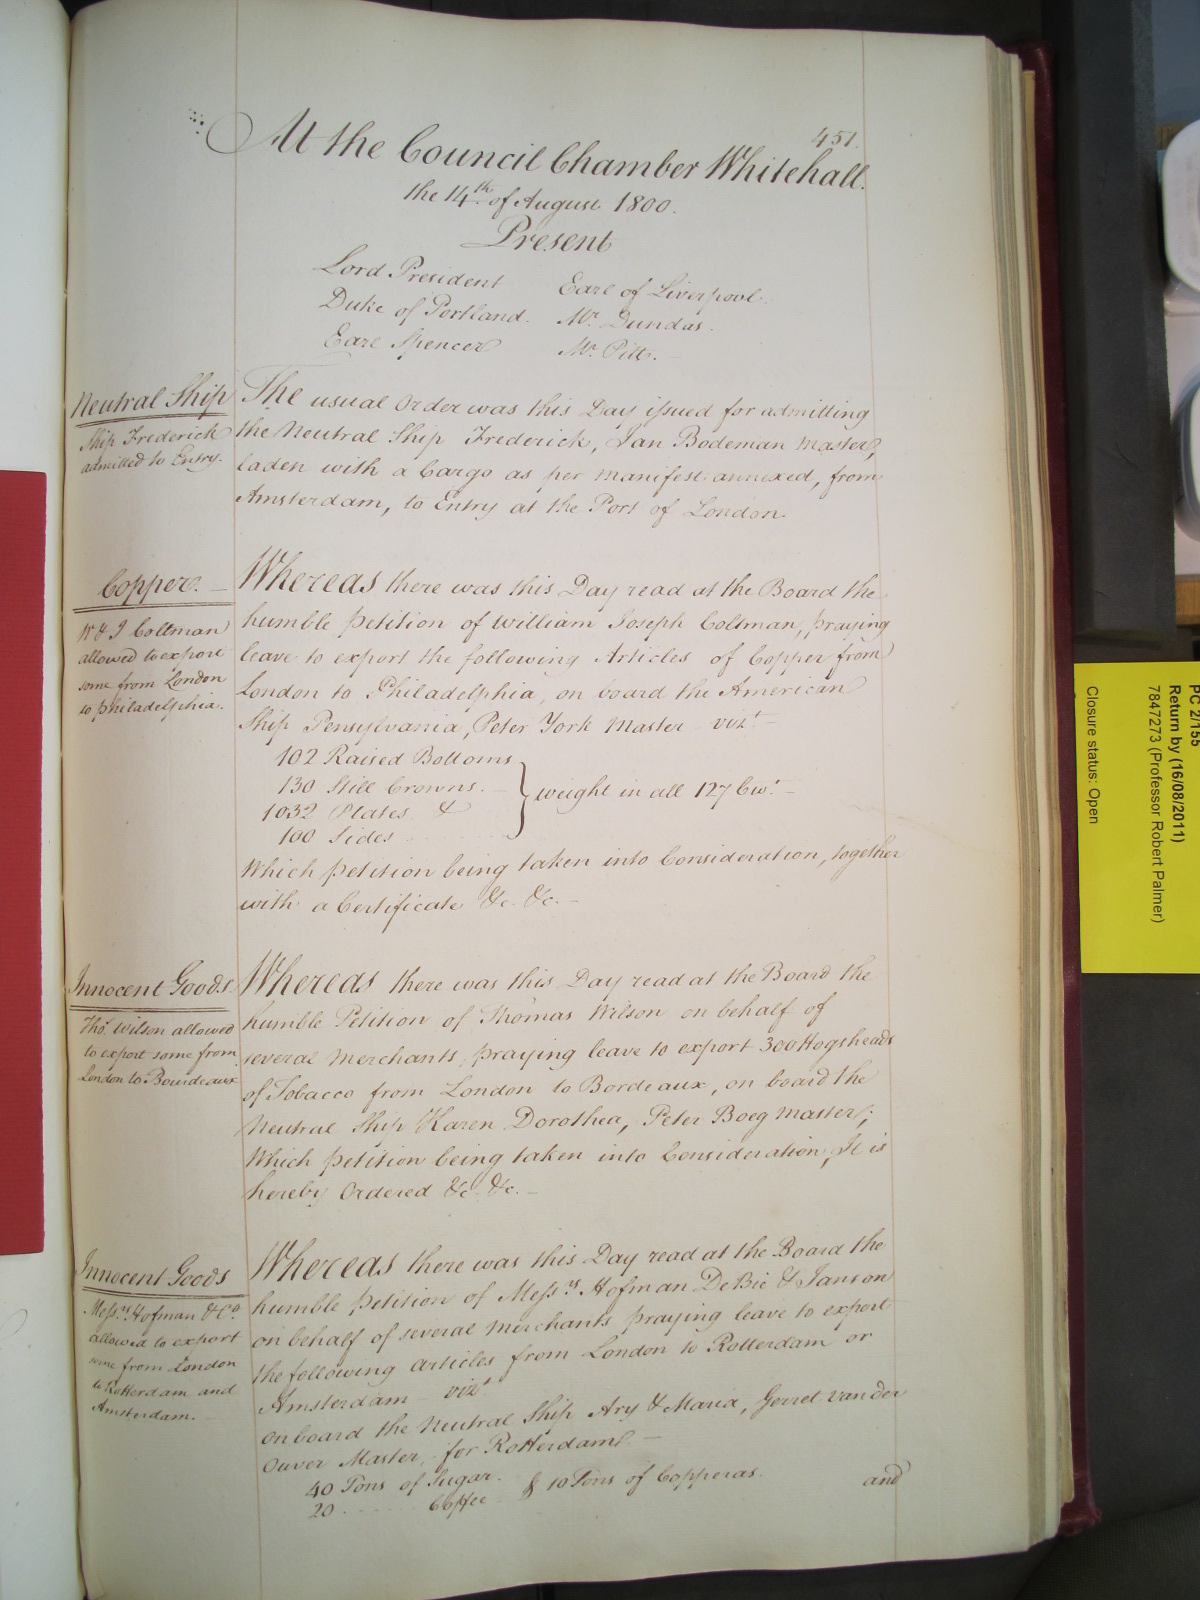 451.
At the Council Chamber Whitehall.
the 14th of August 1800.
Present
Lord President Earl of Liverpool.
Duke of Portland. Mr. Dundas.
Earl Spencer Mr. Pitt.
Neutral Ship
Ship Frederick
admitted to Entry.
The usual Order was this Day issued for admitting
the Neutral Ship Frederick, Jan Bodeman Master,
laden with a Cargo as per Manifest annexed, from
Amsterdam, to Entry at the Port of London.
Copper.
W & J Coltman
allowed to export
some from London
to Philadelphia.
Whereas there was this Day read at the Board the
humble Petition of William Joseph Coltman, praying
leave to export the following Articles of Copper from
London to Philadelphia, on board the American
Ship Pensylvania, Peter York Master vizt
102 Raised Bottoms
130 Still Crowns.
1032 Plates &
100 Sides
weight in all 127 Cwt.
Which Petition being taken into Consideration, together
with a Certificate &c. &c.
Innocent Goods.
Thos. Wilson allowed
to export some from
London to Bourdeaux
Whereas there was this Day read at the Board the
humble Petition of Thomas Wilson on behalf of
several Merchants, praying leave to export 300 Hogsheads
of Tobacco from London to Bordeaux, on board the
Neutral Ship Karen Dorothea, Peter Boeg Master;
Which Petition being taken into Consideration, It is
hereby Ordered &c. &c.
Innocent Goods
Messrs Hofman & Co.
allowed to export
some from London
to Rotterdam and
Amsterdam.
Whereas there was this Day read at the Board the
humble Petition of Messrs Hofman De Bie & Janson
on behalf of several Merchants praying leave to export
the following Articles from London to Rotterdam or
Amsterdam vizt
on board the Neutral Ship Ary & Maria, Gerret van der
Ouver Master, for Rotterdam.
40 Tons of Sugar. & 10 Tons of Copperas.
20 Coffee
and
PC 2/155
Return by (16/08/2011)
7847273 (Professor Robert Palmer)
Closure status: Open